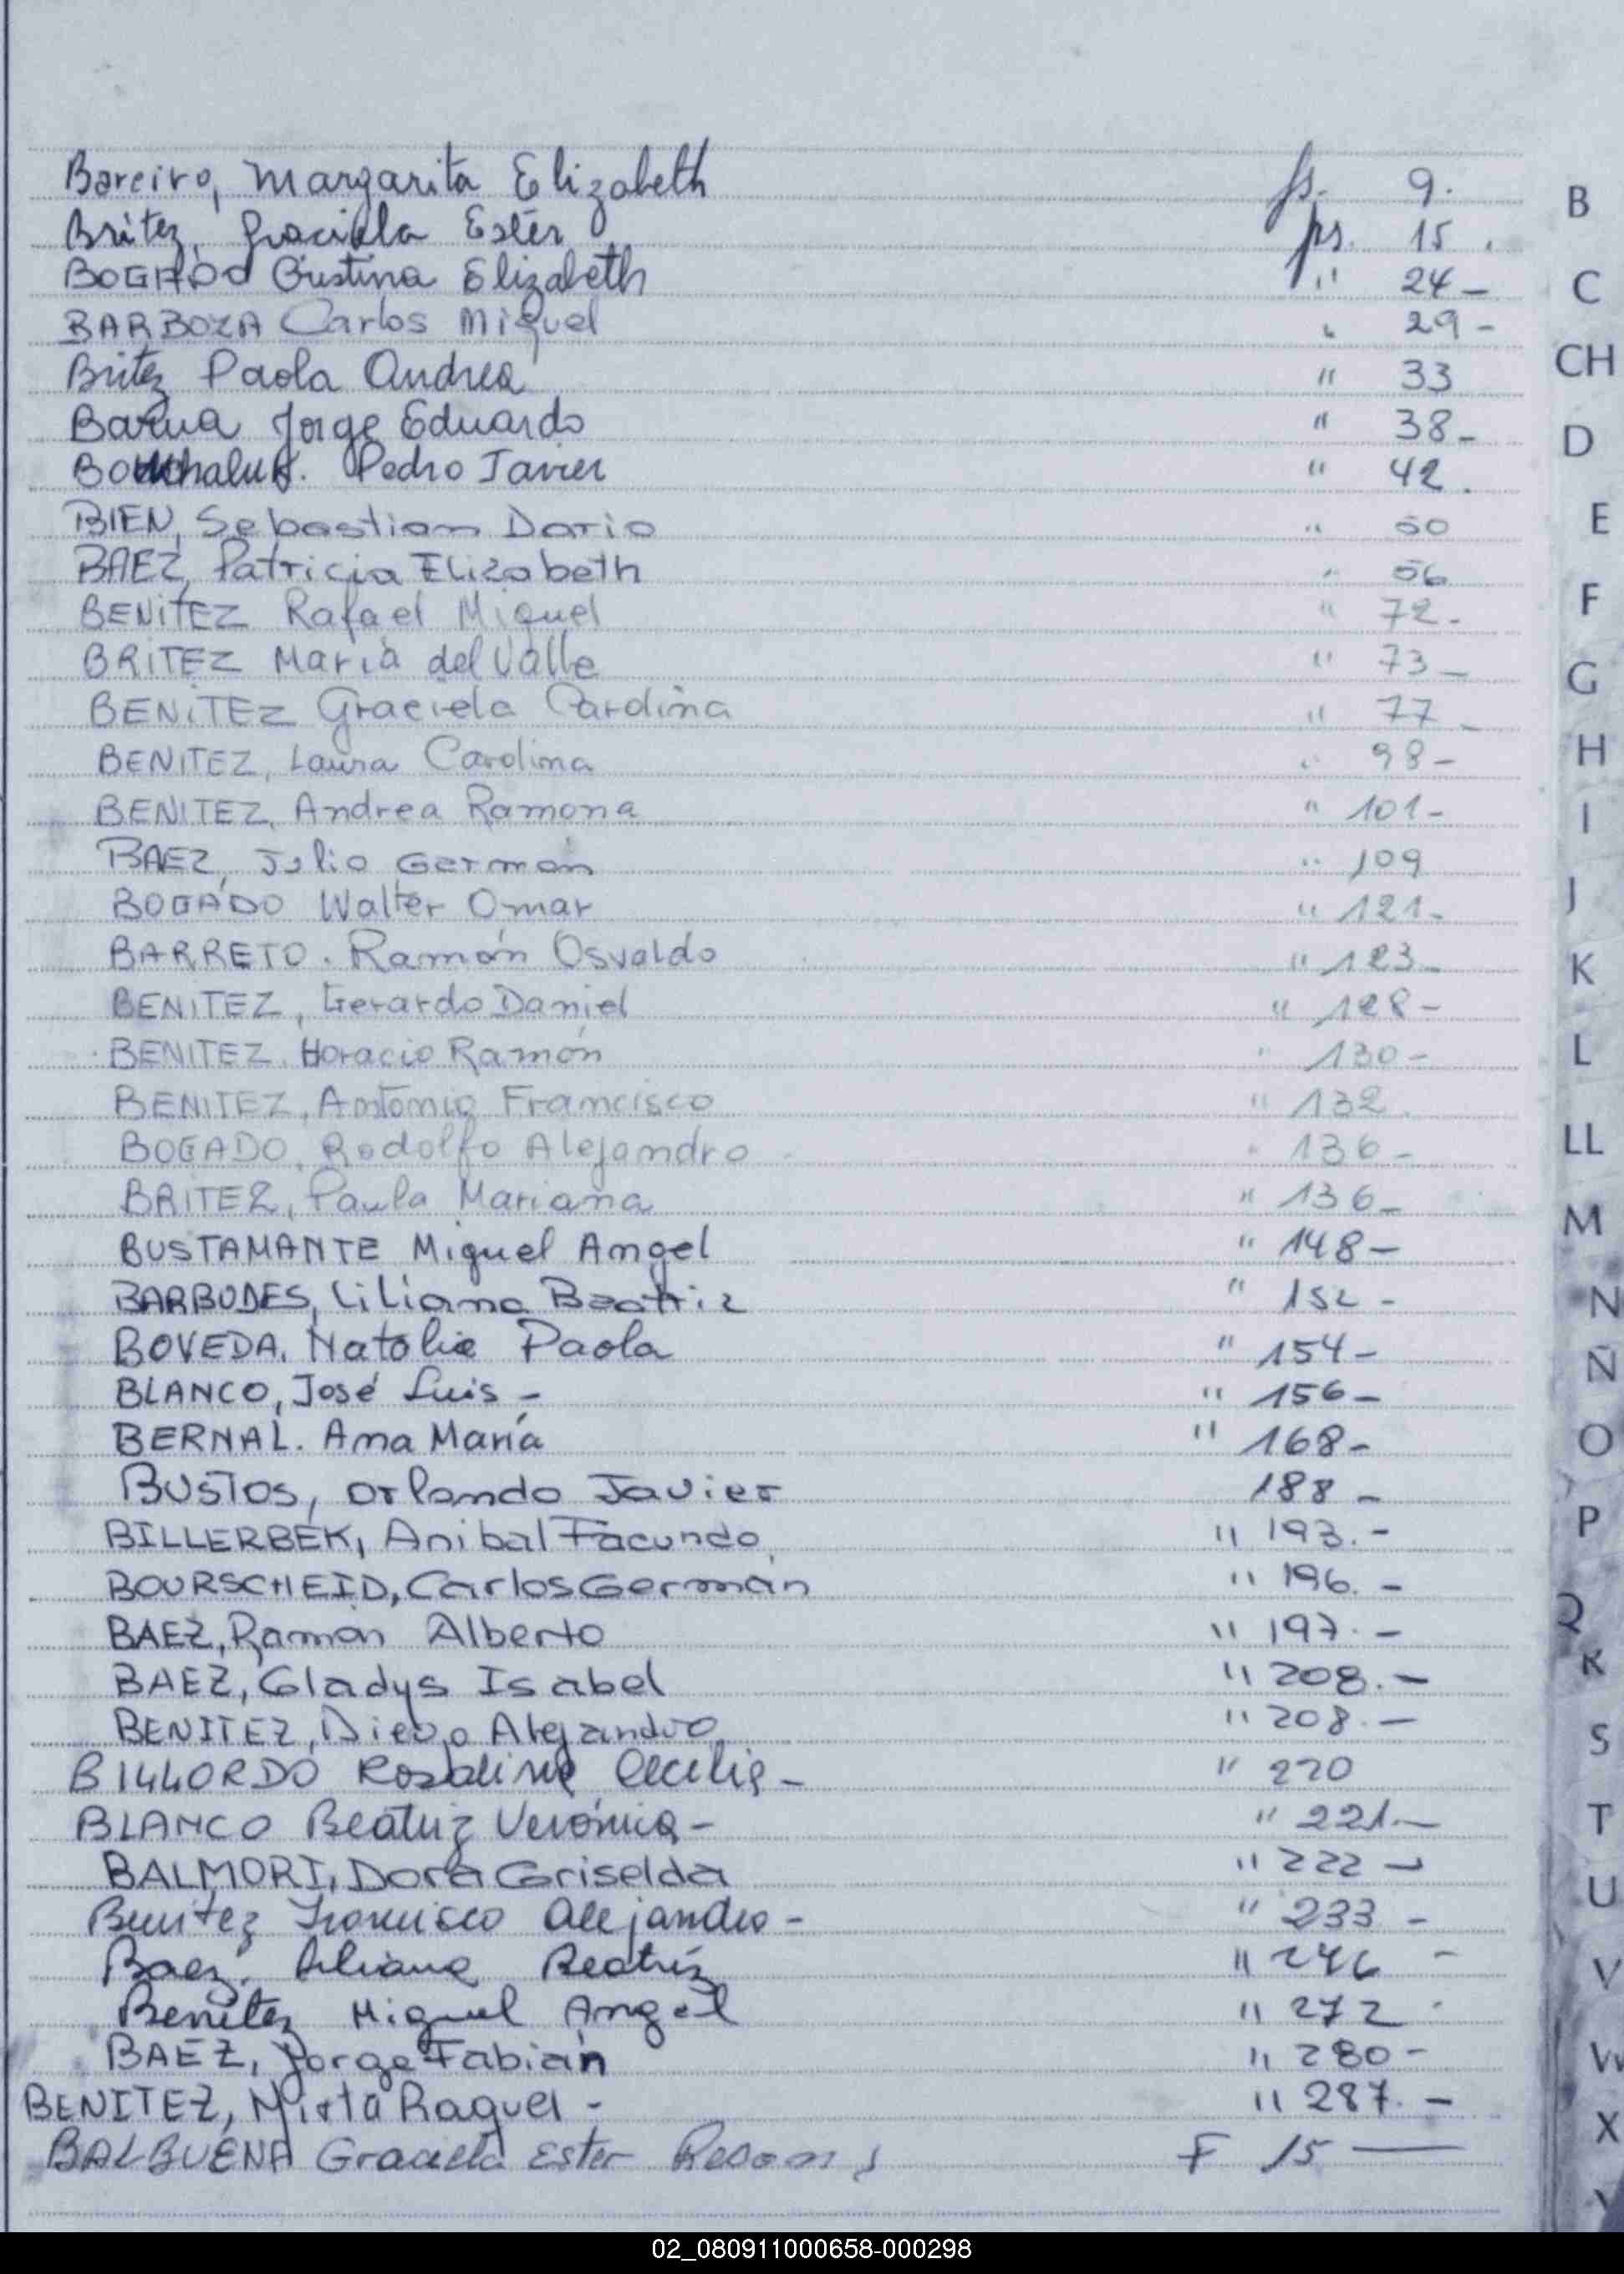 Bareiro, Margarita Elizabeth fs. 9.
Britez, Graciela Ester fs. 15.
BOGADO Cristina Elizabeth " 24 -
BARBOZA Carlos Miguel " 29 -
Britez Paola Andrea " 33
Barua Jorge Eduardo " 38 -
Pedro Javier " 42.
BIEN, Sebastian Dario " 50
BAEZ, Patricia Elizabeth " 56
BENITEZ Rafael Miguel " 72 -
BRITEZ María del Valle " 73 -
BENITEZ Graciela Carolina " 77 -
BENITEZ, Laura Carolina " 98 -
BENITEZ, Andrea Ramona " 101 -
BAEZ, Julio Germán " 109
BOGADO Walter Omar " 121 -
BARRETO. Ramón Osvaldo " 123 -
BENITEZ, Gerardo Daniel " 128 -
BENITEZ, Horacio Ramón " 130 -
BENITEZ, Antonio Francisco " 132.
BOGADO, Rodolfo Alejandro " 136 -
BRITEZ, Paula Mariana " 136 -
BUSTAMANTE Miguel Angel " 148 -
BARBUDES, Liliana Beatriz " 152 -
BOVEDA, Natalia Paola " 154 -
BLANCO, José Luis - " 156 -
BERNAL. Ana María " 168 -
BUSTOS, Orlando Javier 188 -
BILLERBEK, Anibal Facundo " 193. -
BOURSCHEID, Carlos Germán " 196. -
BAEZ, Ramón Alberto " 197. -
BAEZ, Gladys Isabel " 208. -
BENITEZ, Diego Alejandro " 208. -
BILLORDO Rosalina Cecilia - " 220
BLANCO Beatriz Verónica - " 221. -
BALMORI, Dora Griselda " 222 -
Benitez Francisco Alejandro - " 233 -
Baez. Liliana Beatríz " 246 -
Benítez Miguel Angel " 272 -
BAEZ, Jorge Fabián " 280 -
BENITEZ, Mirta Raquel - " 287. -
BALBUENA Graciela Ester F 15 —
B
C
CH
D
E
F
G
H
I
J
K
L
LL
M
N
Ñ
O
P
Q
R
S
T
U
V
W
X
Y
02_080911000658-000298